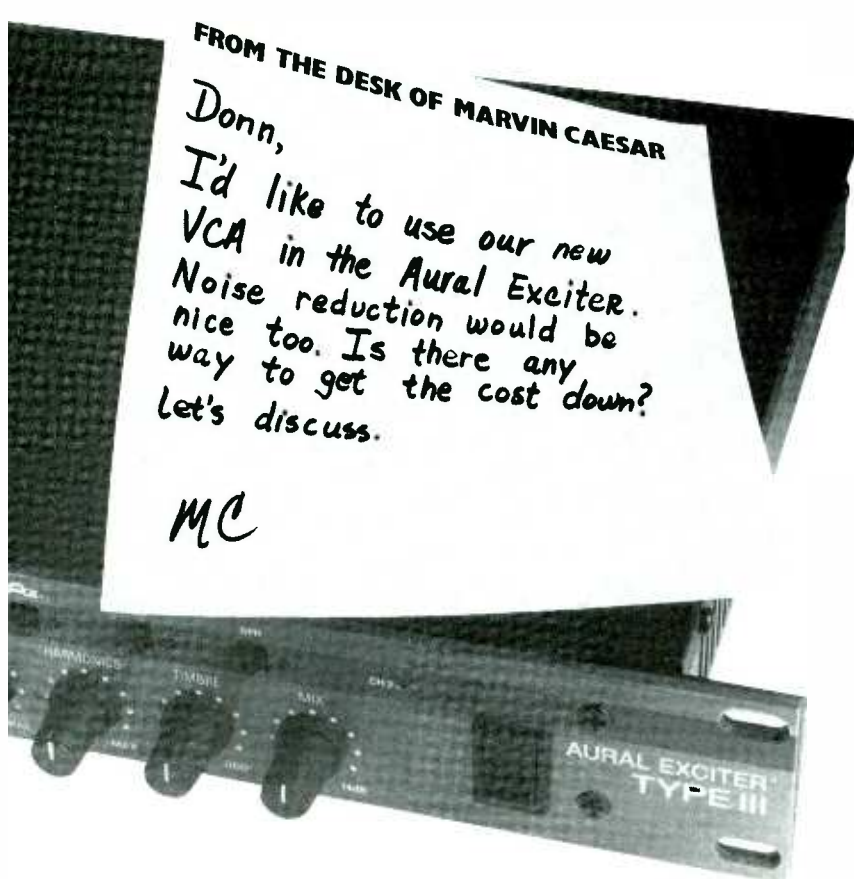 FROM THE DESK OF MARVIN CAESAR
Donn,
I'd like to use our new
VCA in the Aural Exciter.
Noise reduction would be
nice too. Is there any
way to get the cost down?
Let's discuss.
MC
HARMONICS
TIMBRE
MIX
AURAL EXCITER
TYPE III